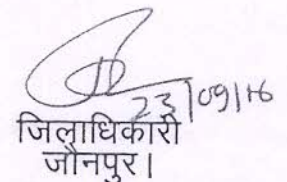 23/09/16
जिलाधिकारी
जौनपुर।